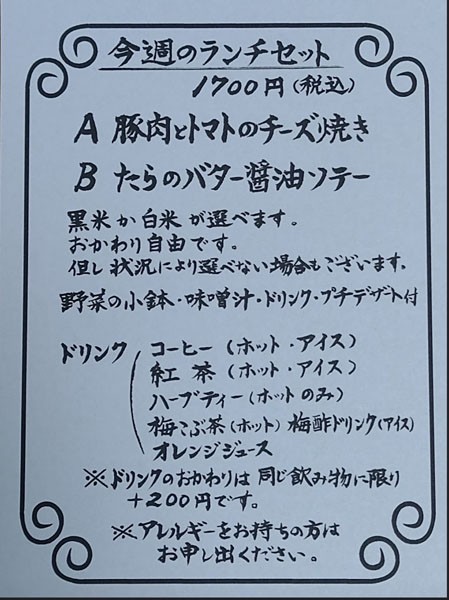 今週のランチセット
1700円(税込)
A 豚肉とトマトのチーズ焼き
B たらのバター醤油ソテー
黒米か白米が選べます。
おかわり自由です。
但し状況により選べない場合もございます。
野菜の小鉢・味噌汁・ドリンク・プチデザート付
ドリンク コーヒー(ホット・アイス)
紅茶(ホット・アイス)
ハーブティー(ホットのみ)
梅こぶ茶(ホット) 梅酢ドリンク(アイス)
オレンジジュース
※ドリンクのおかわりは同じ飲み物に限り
+200円です。
※アレルギーをお持ちの方は
お申し出ください。